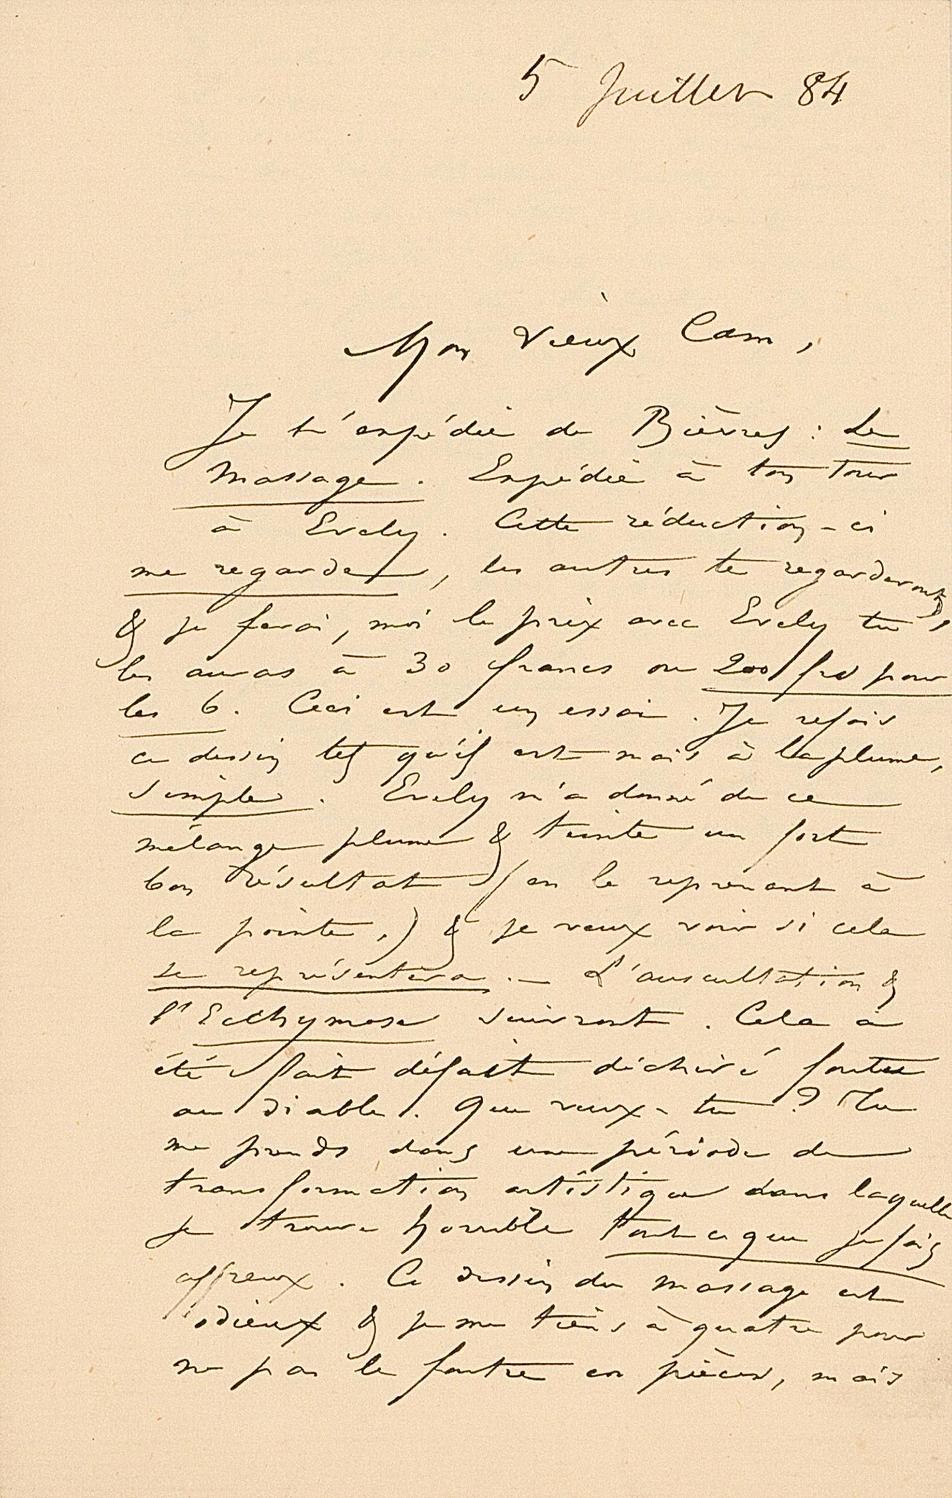 5 Juillet 84
Mon vieux Cam,
Je t'expédie de Bièvres : Le
Massage. Expédie à ton tour
à Evely. Cette réduction-ci
me regarde, les autres te regarderont,
& je ferai, moi le prix avec Evely tu
les auras à 30 francs ou 200 frs pour
les 6. Ceci est un essai. Je refais
ce dessin tel qu'il est mais à la plume,
simple. Evely m'a donné de ce
mélange plume & teinte un fort
bon résultat (en le reprenant à
la pointe,) & je veux voir si cela
se représentera. – L'auscultation &
l'Ecchymose suivront. Cela a
été fait défait déchiré foutu
au diable. Que veux-tu ? Tu
me prends dans une période de
transformation artistique dans laquelle
je trouve horrible tout ce que je fais
affreux. Ce dessin du massage est
odieux & je me tiens à quatre pour
ne pas le foutre en pièces, mais